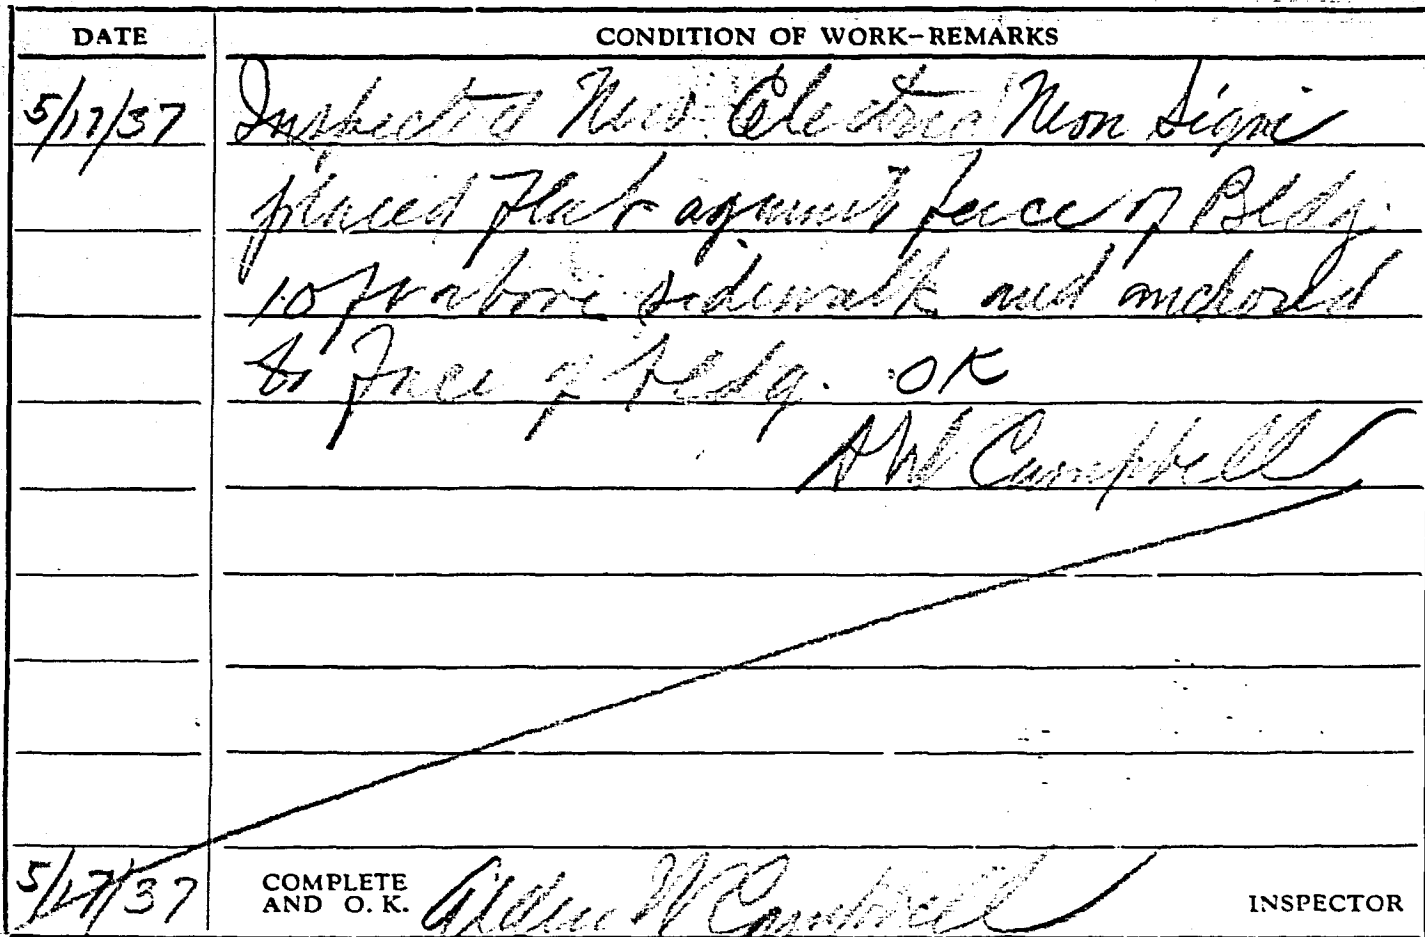 DATE CONDITION OF WORK-REMARKS
5/17/37 Inspected New Electric Neon Sign
placed flat against face of Bldg.
10 ft above sidewalk and anchored
to face of bldg. OK
A W Campbell
5/17/37 COMPLETE AND O. K. Alden W Campbell INSPECTOR